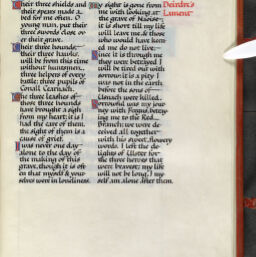 Their three shields and
their spears made a
bed for me often. O
young man, put their
three swords close ov
er their grave.
Their three hounds,
their three hawks,
will be from this time
without huntsmen,
three helpers of every
battle; three pupils of
Conall Cearnach.
The three leashes of
those three hounds
have brought a sigh
from my heart; it is I
had the care of them,
the sight of them is a
cause of grief.
I was never one day
alone to the day of
the making of this
grave, though it is oft
en that myself & your
selves were in loneliness.
My sight is gone from
me with looking at
the grave of Naoise;
it is short till my life
will leave me, & those
who would have keen
ed me do not live.
Since it is through me
they were betrayed I
will be tired out with
sorrow; it is a pity I
was not in the earth
before the sons of
Usnach were killed.
Sorrowful was my jour
ney with Fergus, betray
ing me to the Red
Branch; we were de
ceived all together
with his sweet, flowery
words. I left the de
lights of Ulster for
the three heroes that
were bravest; my life
will not be long, I my
self am alone after them.
Deirdre's
Lament